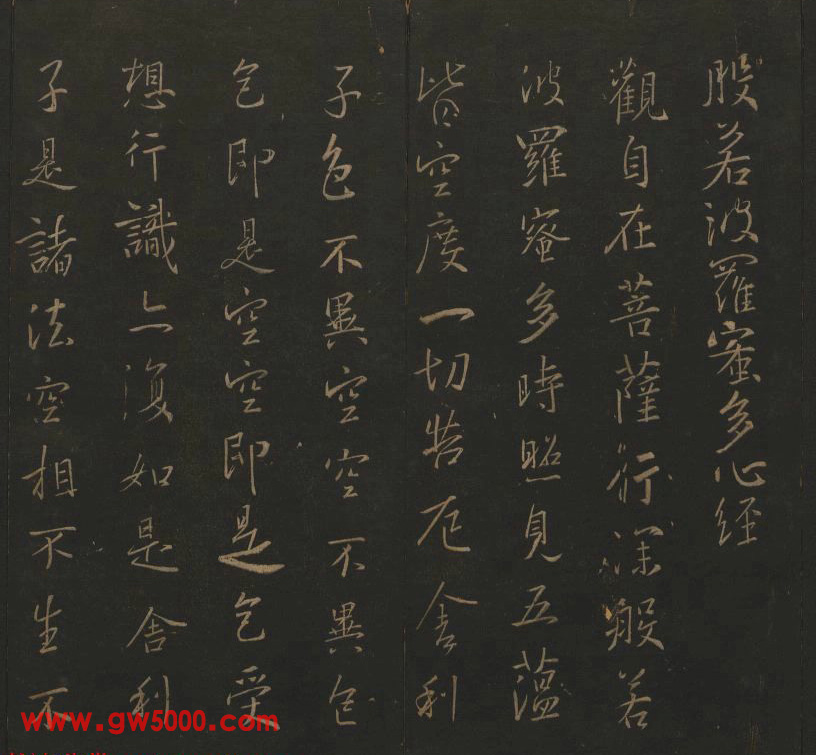 般若波羅蜜多心経
觀自在菩薩行深般若
波羅蜜多時照見五蘊
皆空度一切苦厄舎利
子色不異空空不異色
色即是空空即是色受
想行識亦復如是舎利
子是諸法空相不生不
www.gw5000.com